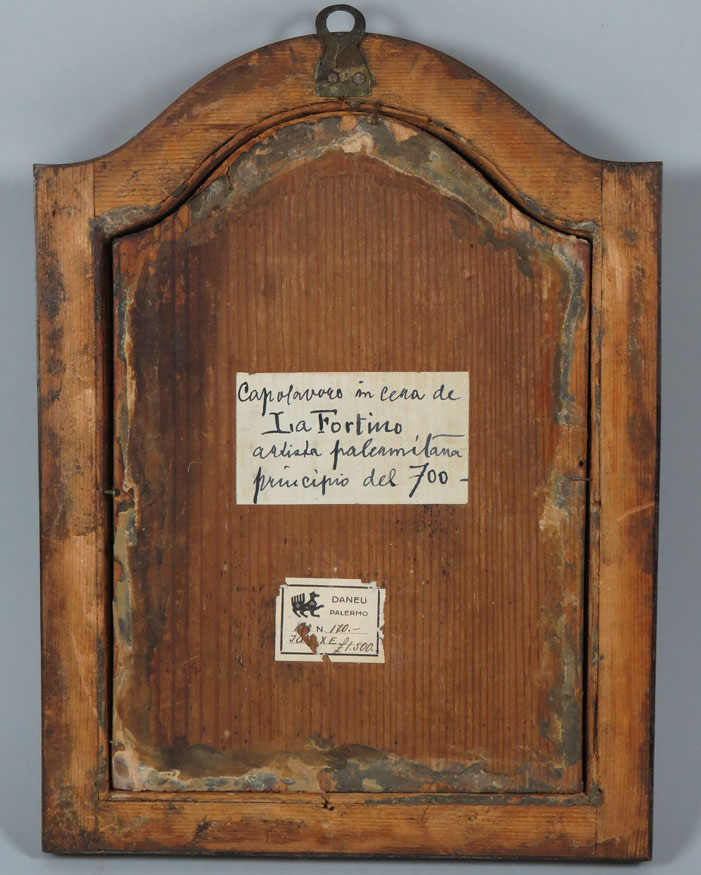 Capolavoro in cera de
La Fortino
artista palermitana
principio del 700 -
DANEU
PALERMO
N. 170.-
X E
£1.500.